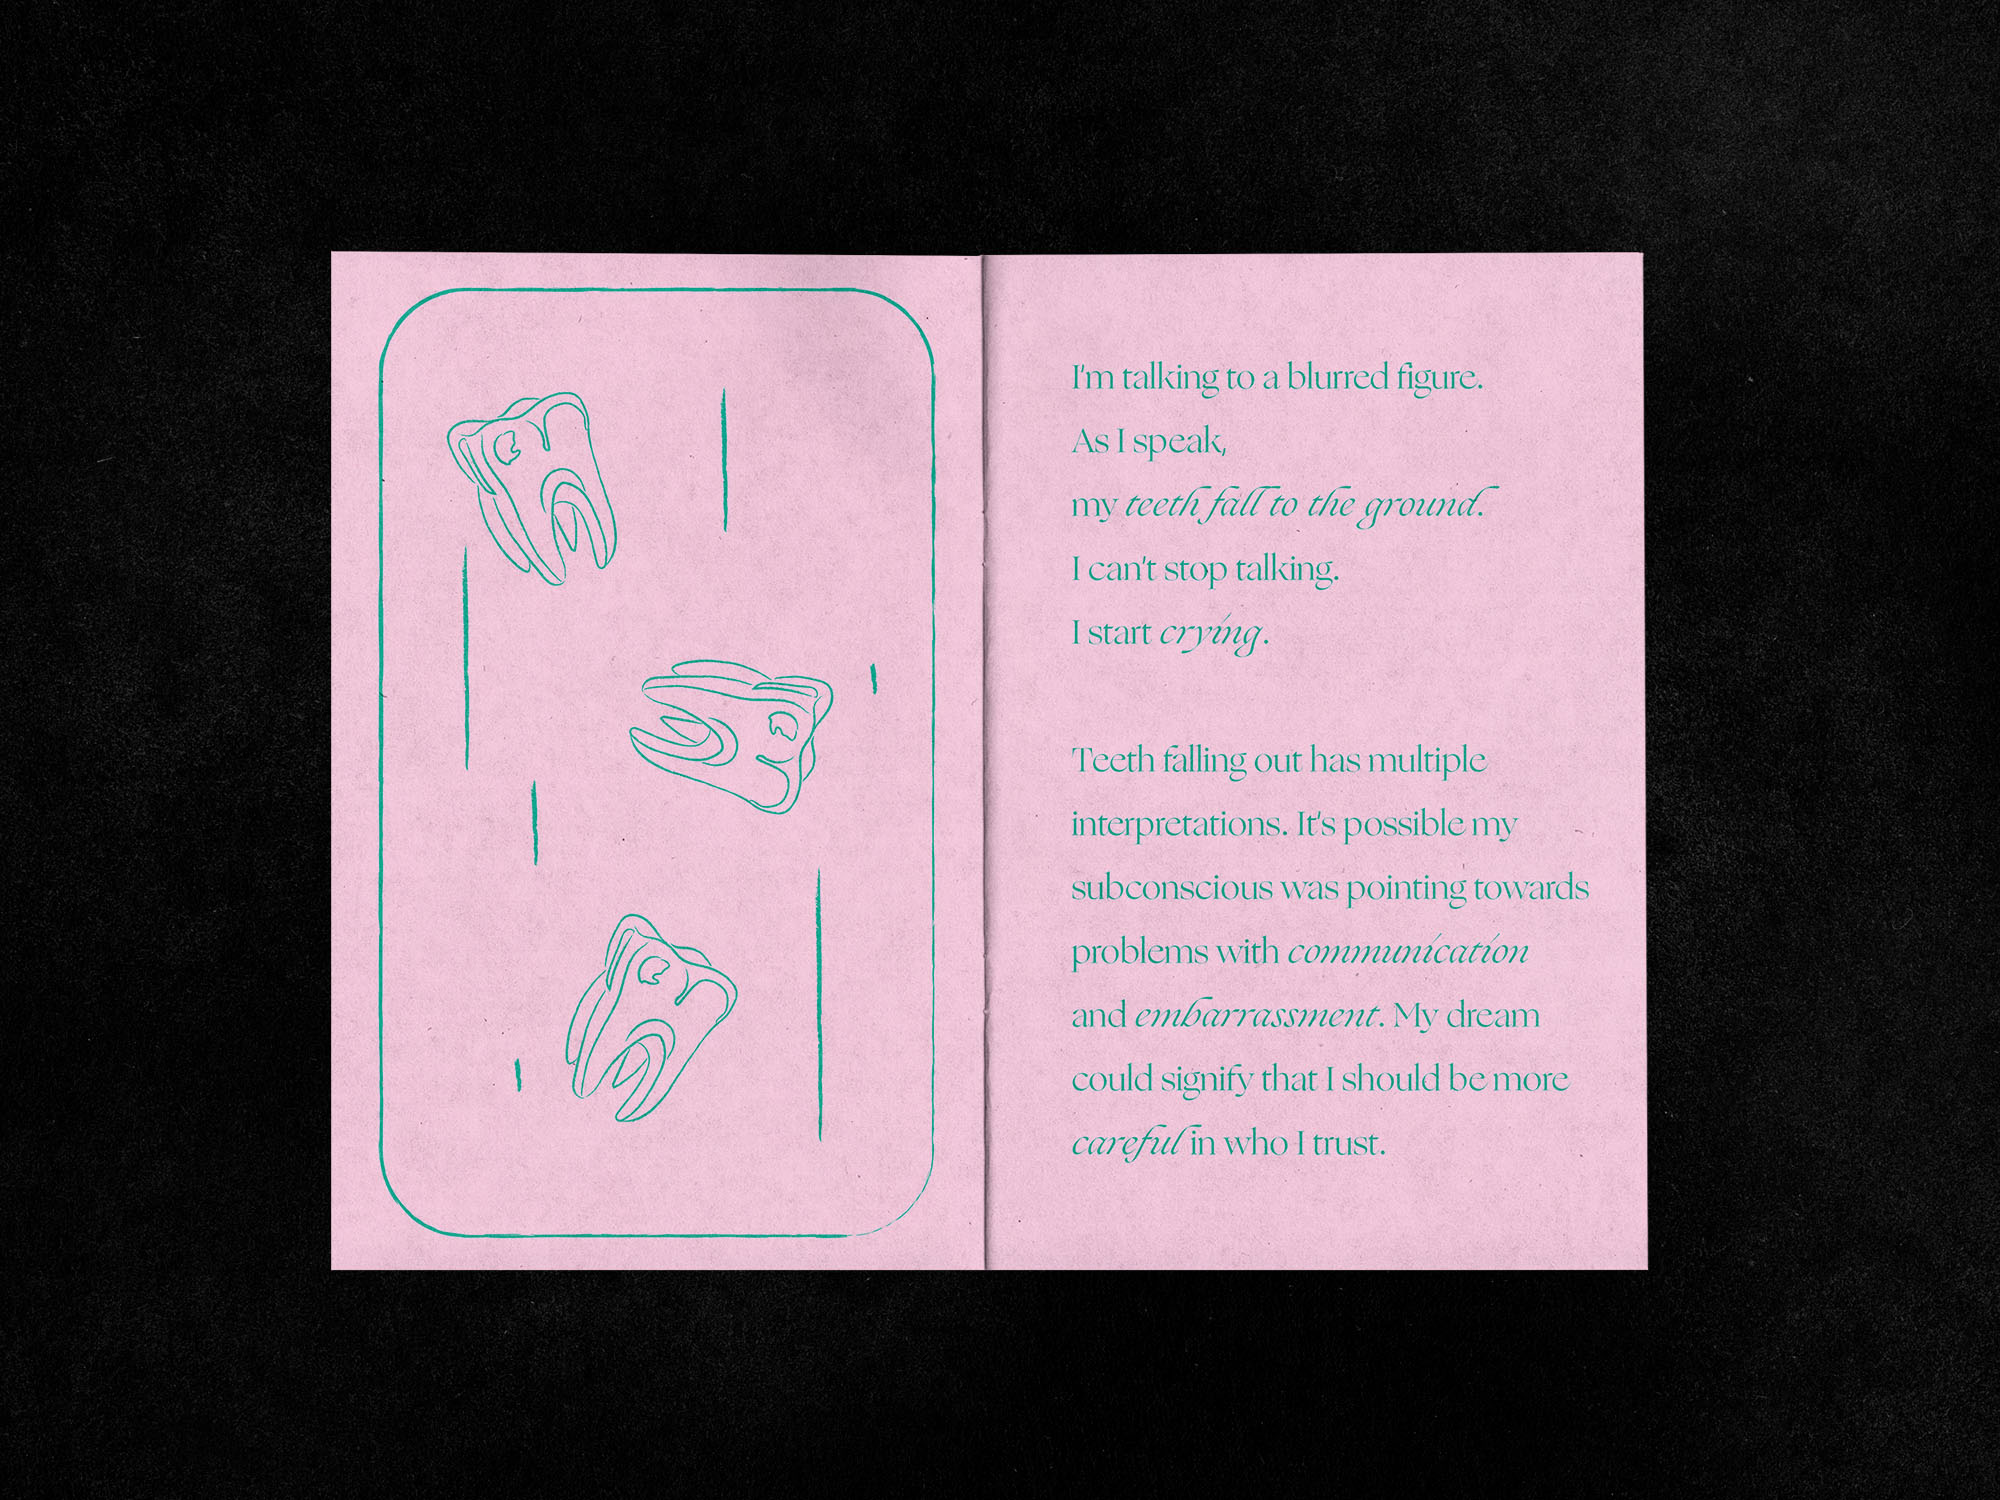 I'm talking to a blurred figure.
As I speak,
my teeth fall to the ground.
I can't stop talking.
I start crying.
Teeth falling out has multiple
interpretations. It's possible my
subconscious was pointing towards
problems with communication
and embarrassment. My dream
could signify that I should be more
careful in who I trust.